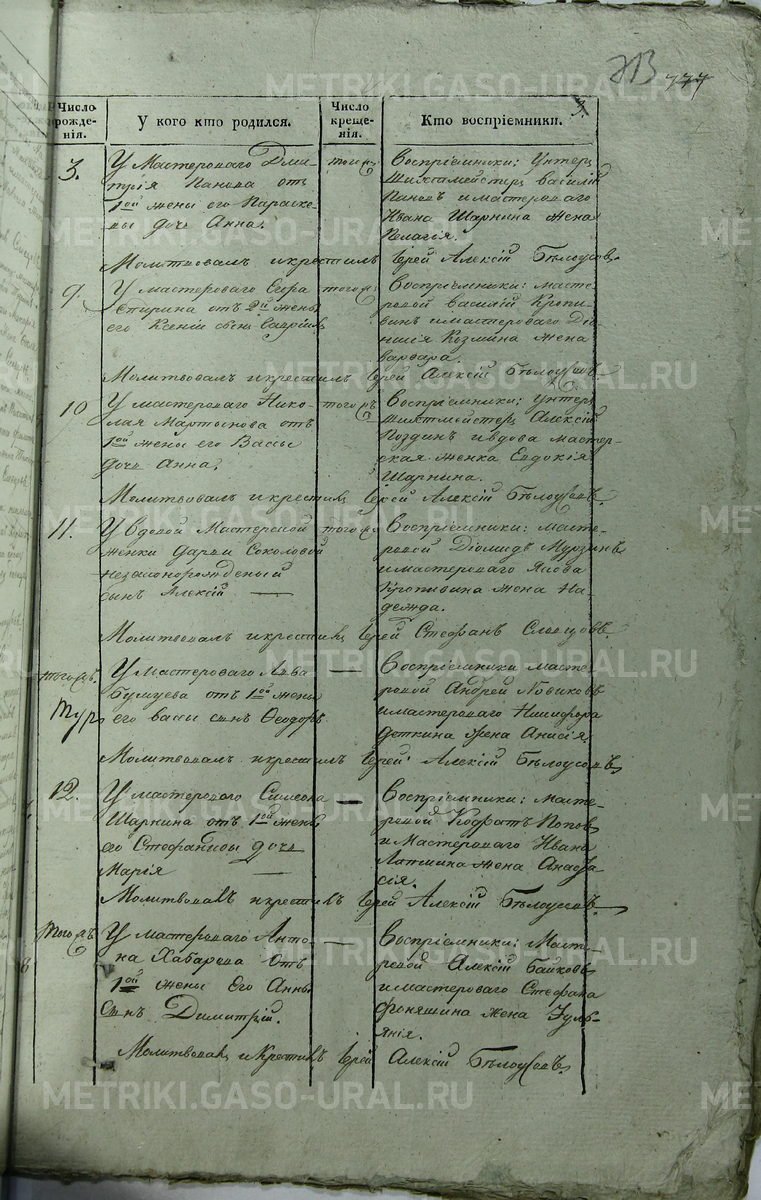 METRIKI.GASO-URAL.RU
777
Число рожде-нія.
У кого кто родился.
Число креще-нія.
Кто воспріемники.
3.
У Мастероваго Дми-
трія Панова отъ
1ой жены его Параске-
вы дочь Анна.
того
Воспріемники: Унтеръ
Шихтмейстеръ Василій
Пановъ и мастероваго
Ивана Шарнина жена
Пелагія.
Молитвовалъ и крестилъ Іерей Алексій Бѣлоусовъ.
9.
У мастероваго
отъ 2ой жены
его Ксеніи сынъ
того
Воспріемники: масте-
ровой Василій Кропи-
винъ и мастероваго Діо-
нисія Козмина жена
Варвара.
Молитвовалъ и крестилъ Іерей Алексій Бѣлоусовъ.
10
У мастероваго Нико-
лая Мартынова отъ
1ой жены его Вассы
дочь Анна.
того
Воспріемники: Унтеръ
шихтмейстеръ Алексій
Поздинъ и вдова мастер-
ская женка Евдокія
Шарнина.
Молитвовалъ и крестилъ Іерей Алексій Бѣлоусовъ.
11.
У вдовой Мастерской
женки Дарьи Соколовой
незаконорожденный
сынъ Алексій —
того
Воспріемники: масте-
ровой Діомидъ Мурзинъ
и мастероваго Якова
Кропивина жена На-
дежда.
Молитвовалъ и крестилъ Іерей Стефанъ Словцовъ.
тогожъ.
У Мастероваго Льва
Бушуева отъ 1ой жены
его Вассы сынъ Ѳеодоръ.
—
Воспріемники масте-
ровой Андрей Новиковъ
и мастероваго Никифора
Деткина жена Анисія.
Молитвовалъ и крестилъ Іерей Алексій Бѣлоусовъ.
12.
У мастероваго Симеона
Шарнина отъ 1ой жены
его Стефаниды дочь
Марія —
—
Воспріемники: масте-
ровой Кодратъ Поповъ
и Мастероваго Ивана
Лапшина жена Анаста-
сія.
Молитвовалъ и крестилъ Іерей Алексій Бѣлоусовъ.
Тогожъ
У мастероваго Анто-
на Хабарова отъ
1ой жены Его Анны
сынъ Димитрій.
—
Воспріемники: Масте-
ровой Алексій Байковъ
и мастероваго Стефана
Фоняшина жена Іуль-
янія.
Молитвовалъ и Крестилъ Іерей Алексій Бѣлоусовъ.
METRIKI.GASO-URAL.RU